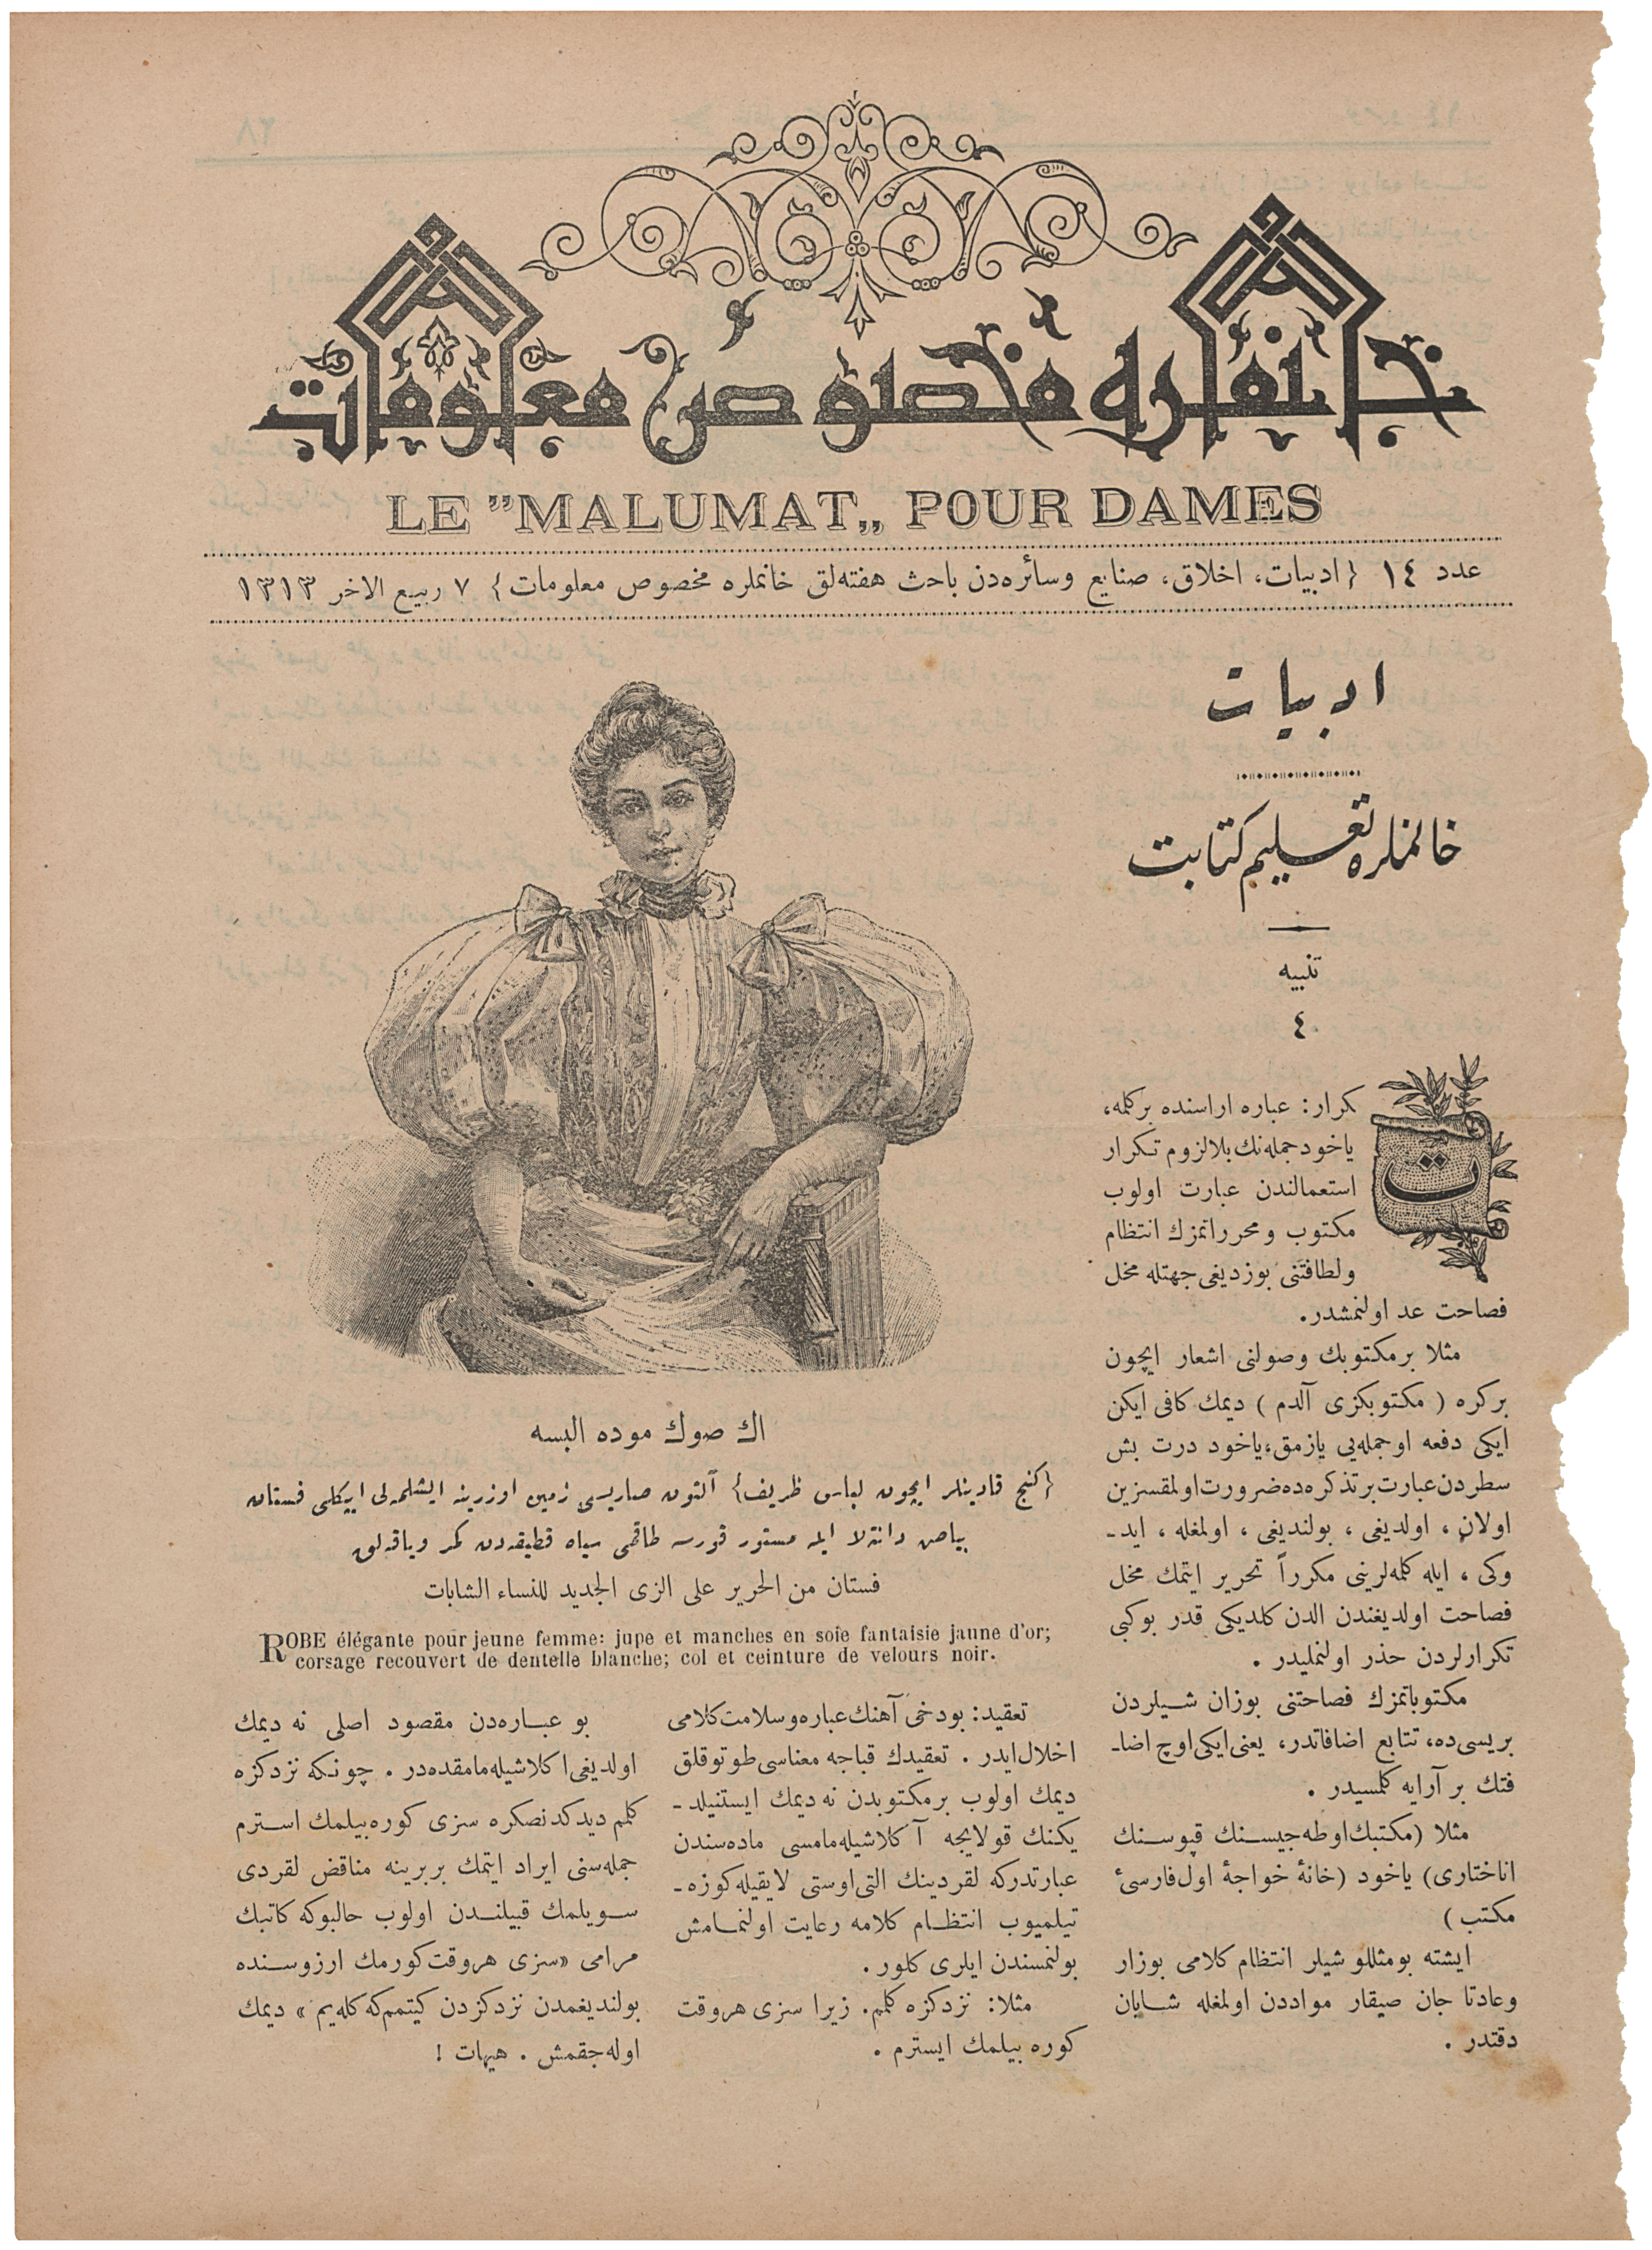 خانملره مخصوص معلومات
LE "MALUMAT„ POUR DAMES
عدد ١٤ {ادبیات، اخلاق، صنایع وسائره‌دن باحث هفته‌لق خانملره مخصوص معلومات} ٧ ربیع الاخر ١٣١٣
ادبیات
خانملره تعلیم کتابت
تنبیه
٤
تكرار: عباره اراسنده بركلمه،
یاخود جمله‌نك بلالزوم تكرار
استعمالندن عبارت اولوب
مكتوب ومحرراتمزك انتظام
ولطافتنی بوزدیغی جهتله مخل
فصاحت عد اولنمشدر.
مثلا برمكتوبك وصولنی اشعار ایچون
بركره ( مكتوبكزی آلدم ) دیمك كافی ایكن
ایكی دفعه اوجمله‌یی یازمق، یاخود درت بش
سطردن عبارت برتذكره‌ده ضرورت اولمقسزین
اولان، اولدیغی، بولندیغی، اولمغله، اید-
وكی، ایله كلمه‌لرینی مكرراً تحریر ایتمك مخل
فصاحت اولدیغندن الدن كلدیكی قدر بوكبی
تكرارلردن حذر اولنملیدر.
مكتوباتمزك فصاحتنی بوزان شیلردن
بریسی‌ده، تتابع اضافاتدر، یعنی ایكی اوچ اضا-
فتك بر آرایه كلمسیدر.
مثلا (مكتبك اوطه‌جیسنك قپوسنك
اناختاری) یاخود (خانهٔ خواجهٔ اول فارسیٔ
مكتب)
ایشته بومثللو شیلر انتظام كلامی بوزار
وعادتا جان صیقار مواددن اولمغله شایان
دقتدر.
اك صوك موده البسه
{كنج قادینلر ایچون لباس ظریف} آلتون صاریسی زمین اوزرینه ایشلمه‌لی ایپكلی فستان
بیاض دانتلا ایله مستور قورسه طاقمی سیاه قطیفه‌دن كمر ویاقه‌لق
فستان من الحریر علی الزی الجدید للنساء الشابات
ROBE élégante pour jeune femme: jupe et manches en soie fantaisie jaune d'or;
corsage recouvert de dentelle blanche; col et ceinture de velours noir.
تعقید: بودخی آهنك عباره وسلامت كلامی
اخلال ایدر. تعقیدك قباجه معناسی طوتوقلق
دیمك اولوب برمكتوبدن نه دیمك ایستنیلد-
یكنك قولایجه آكلاشیله‌مامسی ماده‌سندن
عبارتدركه لقردینك التی اوستی لایقیله كوزه-
تیلمیوب انتظام كلامه رعایت اولنمامش
بولنمسندن ایلری كلور.
مثلا: نزدكزه كلمم. زیرا سزی هروقت
كوره بیلمك ایسترم.
بو عباره‌دن مقصود اصلی نه دیمك
اولدیغی اكلاشیله‌مامقده‌در. چونكه نزدكزه
كلمم دیدكدنصكره سزی كوره بیلمك استرم
جمله‌سنی ایراد ایتمك بربرینه مناقض لقردی
سویلمك قبیلندن اولوب حالبوكه كاتبك
مرامی «سزی هروقت كورمك ارزوسنده
بولندیغمدن نزدكزدن كیتمم كه كله‌یم» دیمك
اوله‌جقمش. هیهات!